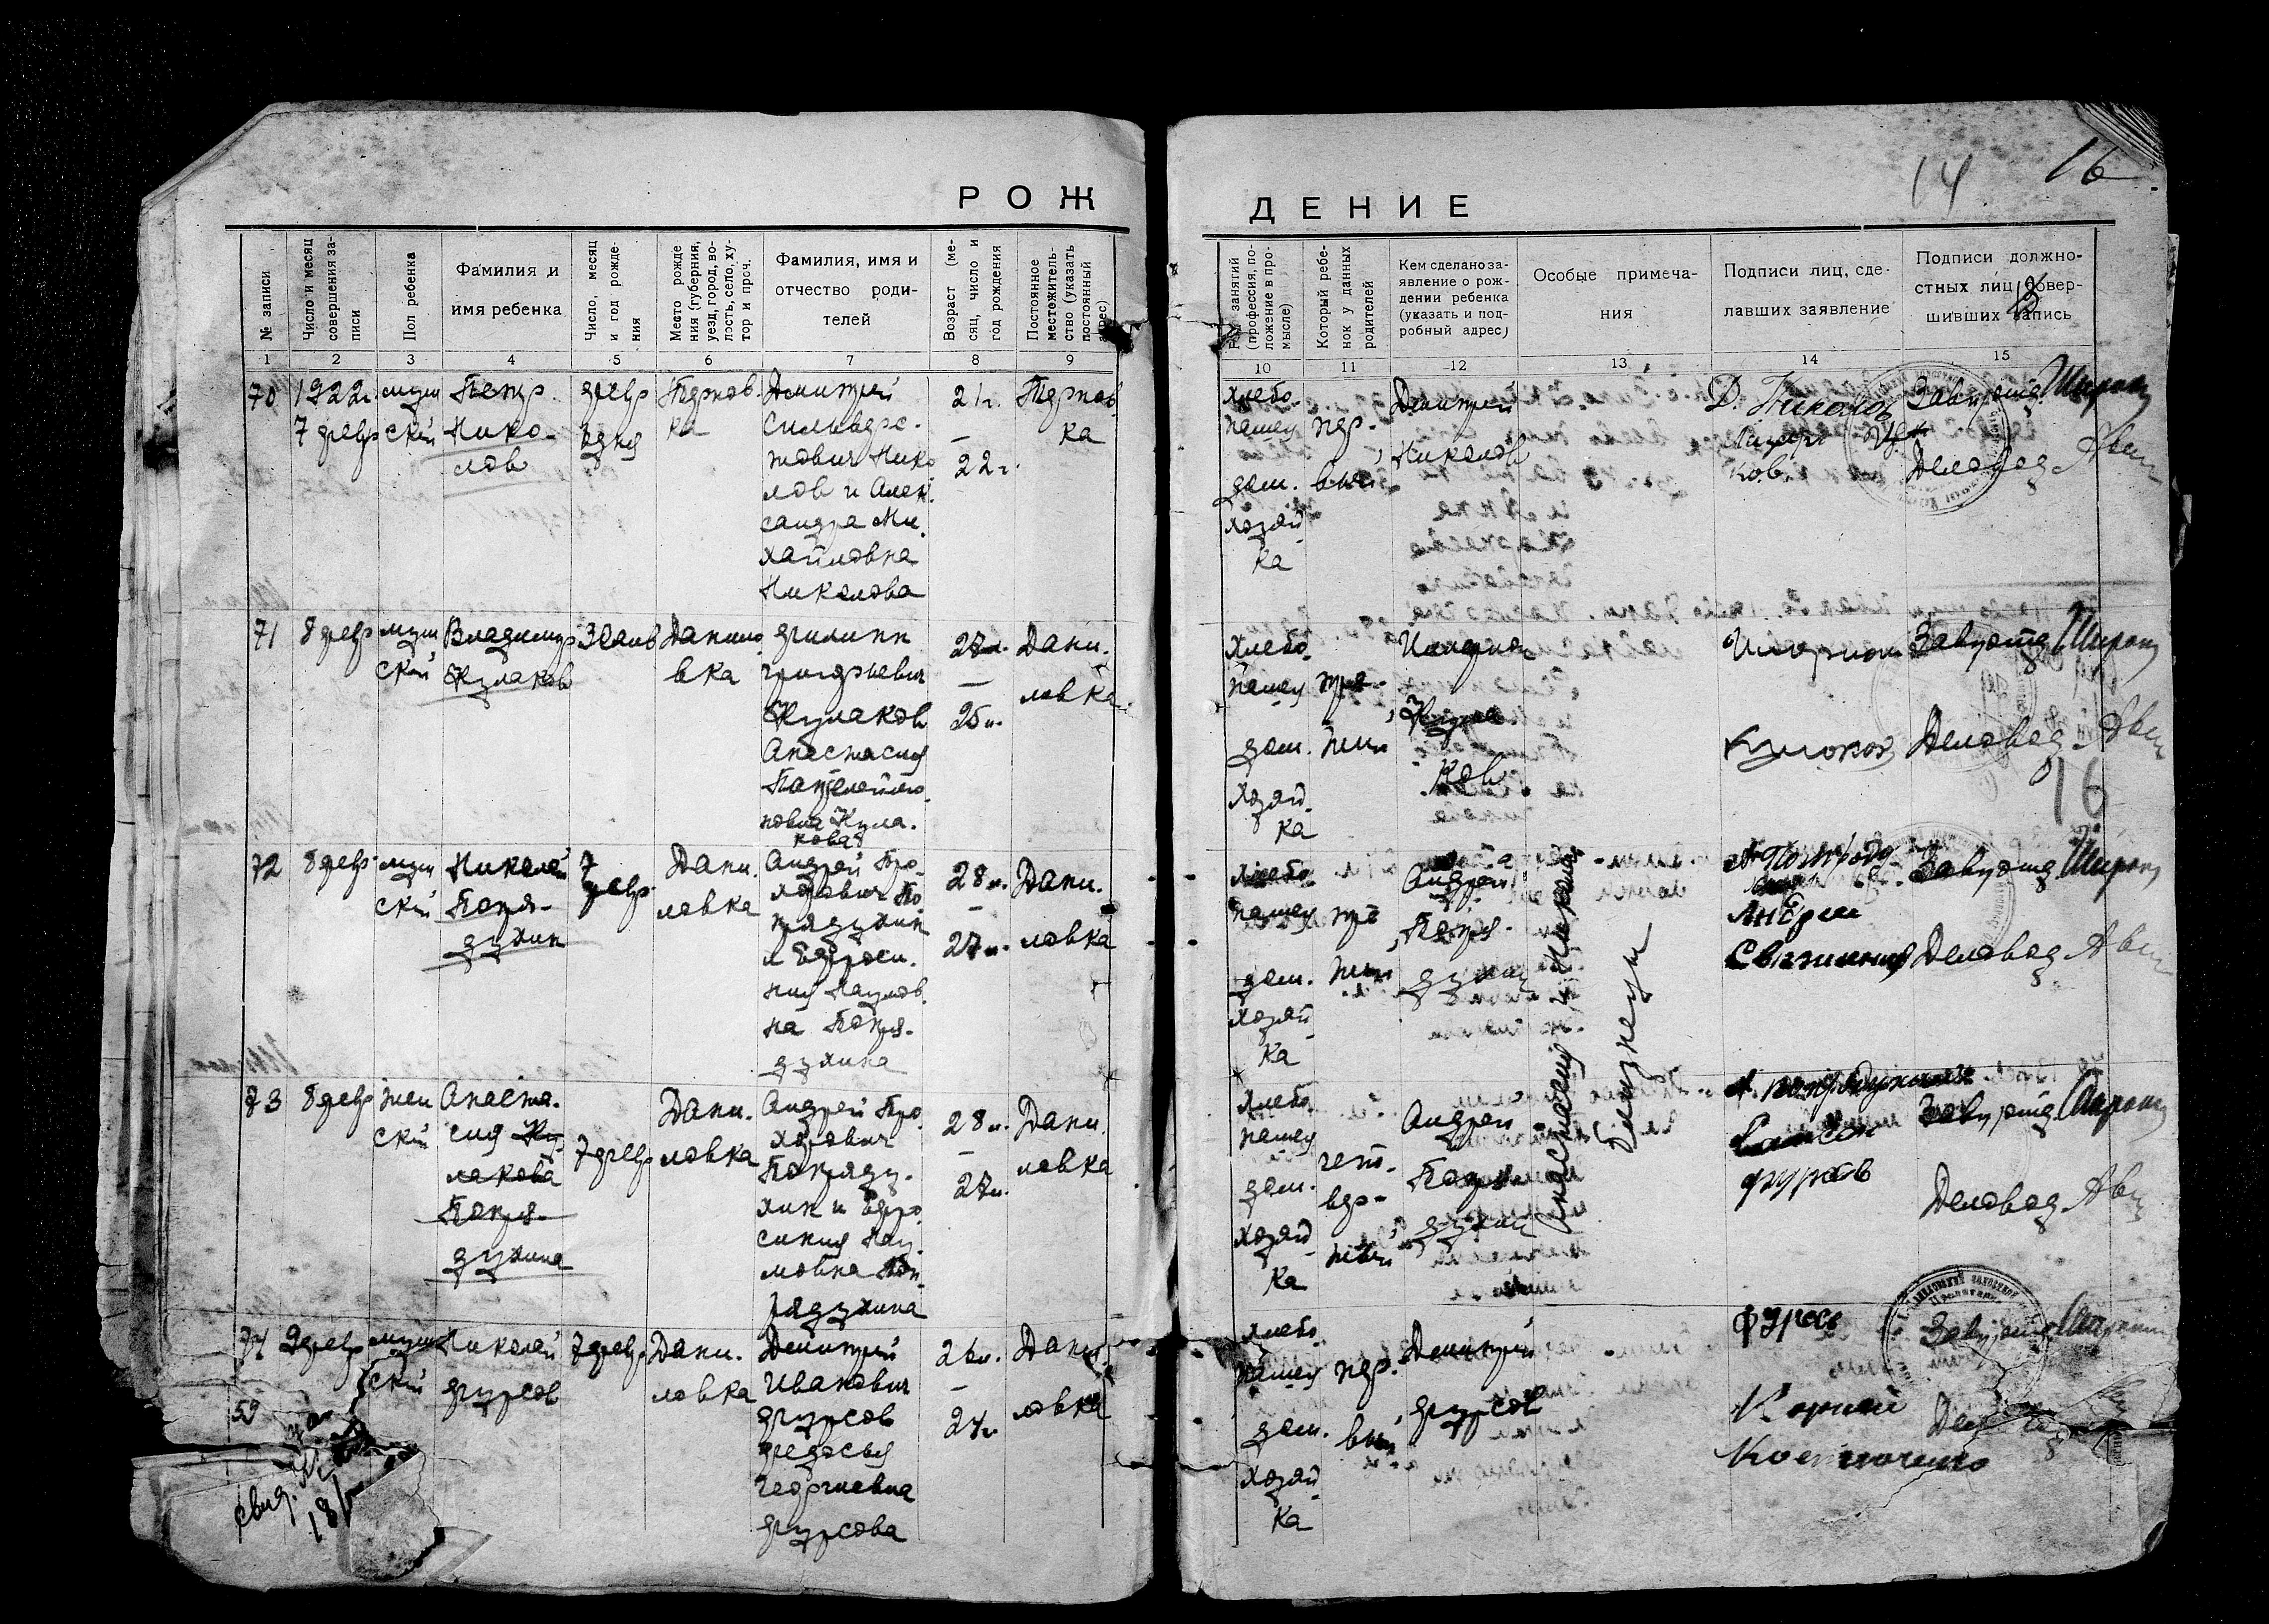 14
16
РОЖ
ДЕНИЕ
№ записи
Число и месяц
совершения за-
писи
Пол ребенка
Фамилия и
имя ребенка
Число, месяц
и год рожде-
ния
Место рожде
ния (губерния,
уезд, город, во-
лость, село, ху-
тор и проч.
Фамилия, имя и
отчество роди-
телей
Возраст (ме-
сяц, число и
год рождения
Постоянное
местожитель-
ство (указать
постоянный
адрес)
занятий
(профессия, по-
ложение в про-
мысле)
Который ребе-
нок у данных
родителей
Кем сделано за-
явление о рож-
дении ребенка
(указать и под-
робный адрес)
Особые примеча-
ния
Подписи лиц, сде-
лавших заявление
Подписи должно-
стных лиц совер-
шивших запись
1
2
3
4
5
6
7
8
9
10
11
12
13
14
15
70
1922г.
7 февр
муж
ский
Петр
Нико-
лов
февр
Терновка
Дмитрий
Сильвес-
трович Нико
лов и Алек.
сандра Ми.
хайловна
Николова
21г.
—
22г.
Тернов
ка
хлебо.
пашец
дом.
хозяй
ка
пер-
вый
Дмитрий
Николов
Д. Николов
Завуота
Деловод
71
8 февр
муж
ский
Владимир
Кулаков
30 янв
Данило
вка
Филипп
Григорьевич
Кулаков
Анастасия
Пантелеймо.
новна Кула.
кова
28л.
—
25л.
Дани.
ловка
хлебо.
пашец
дом.
хозяй
ка
тре-
тий
Кулаков
Завуота
Деловод
16
72
8 февр
муж
ский
Николай
Попря-
духин
7
февр
Дани.
ловка
Андрей Про-
хорович По
прядухин
и Ефроси.
ния Наумов.
на Попря-
духина
28л.
—
27л.
Дани.
ловка
хлебо.
пашец
дом.
хозяй
ка
тре
тий
Андрей
Попря-
духин
Анастасия и Николай
близнецы
Завуота
Деловод
73
8 февр
жен
ский
Анаста.
сия Ку
лакова
Попря-
духина
7 февр
Дани.
ловка
Андрей Про.
хорович
Попряду-
хин и Ефро
синия Нау.
мовна Поп-
рядухина
28л.
—
27л.
Дани.
ловка
хлебо.
пашец
дом.
хозяй
ка
чет.
вер-
тый
Андрей
Попря
духин
Самсон
Фурсов
Завуота
Деловод
74
9 февр
муж
ский
Николай
Фурсов
7 февр
Дани.
ловка
Дмитрий
Иванович
Фурсов
Федосья
Георгиевна
Фурсова
26л.
—
24г.
Дани
ловка
хлебо
пашец
дом.
хозяй
ка
пер.
вый
Дмитрий
Фурсов
Фурсов
Корней
Завуота
59
свид.
18/